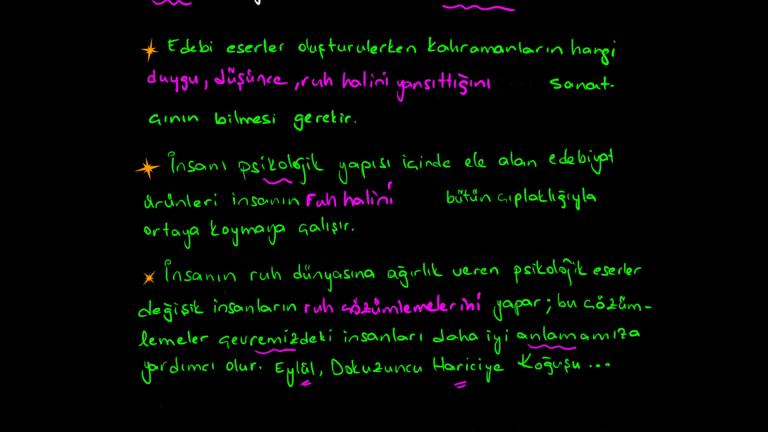 Edebi eserler oluşturulurken kahramanların hangi
duygu, düşünce, ruh halini yansıttığını sanat-
çının bilmesi gerekir.
İnsanı psikolojik yapısı içinde ele alan edebiyat
ürünleri insanın ruh halini bütün çıplaklığıyla
ortaya koymaya çalışır.
İnsanın ruh dünyasına ağırlık veren psikolojik eserler
değişik insanların ruh çözümlemelerini yapar; bu çözüm-
lemeler çevremizdeki insanları daha iyi anlamamıza
yardımcı olur. Eylül, Dokuzuncu Hariciye Koğuşu...